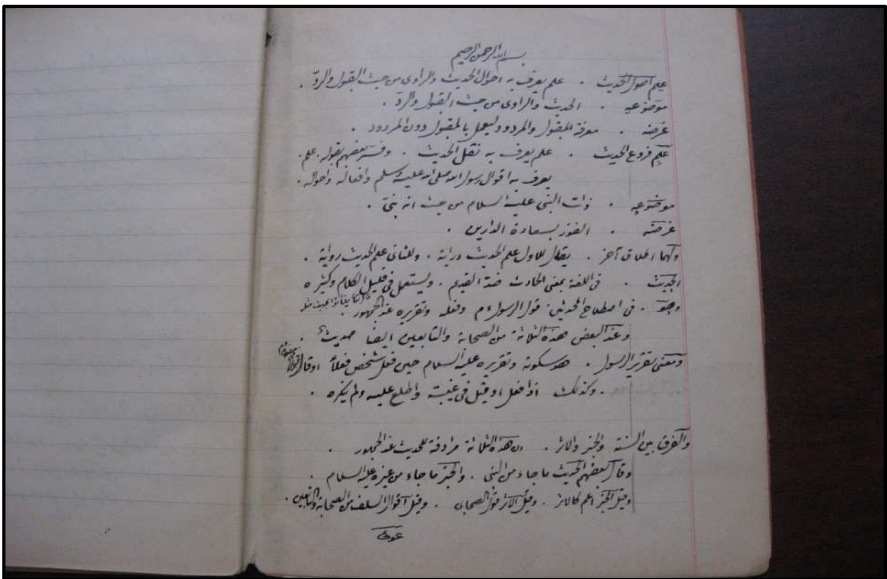 بسم الله الرحمن الرحيم
علم اصول الحديث . علم يعرف به احوال الحديث والراوى من حيث القبول والردّ .
موضوعه . الحديث والراوى من حيث القبول والردّ .
غرضه . معرفة المقبول والمردود ليعمل بالمقبول دون المردود .
علم فروع الحديث . علم يعرف به نقل الحديث . وفسّر بعضهم بقوله . علم
يعرف به اقوال رسول الله صلى الله عليه وسلم وافعاله واحواله .
موضوعه . ذات النبى عليه السلام من حيث انه نبىّ .
غرضه . الفوز بسعادة الدارين .
ولهما اطلاق آخر . يقال للاول علم الحديث دراية . وللثانى علم الحديث رواية .
الحديث . فى اللغة بمعنى الحادث ضدّ القديم . ويستعمل فى قليل الكلام وكثيره
وجعه . فى اصطلاح المحدثين قول الرسول ءم وفعله وتقريره عند الجمهور
وعند البعض هذه الثلاثة من الصحابة والتابعين ايضا حديث .
ومعنى تقرير الرسول . هو سكوته وتقريره عليه السلام حين فعل شخص فعلاً او قال
. وكذلك اذا فعل او قيل فى غيبته واطلع عليه ولم ينكره .
والفرق بين السنة والخبر والاثر . ان هذه الثلاثة مرادفة للحديث عند الجمهور .
وقال بعضهم الحديث ما جاء من النبى . والخبر ما جاء من غيره عليه السلام .
وقيل الخبر اعم كالاثر . وقيل الاثر قول الصحابى . وقيل اقوال السلف من الصحابة والتابعين .